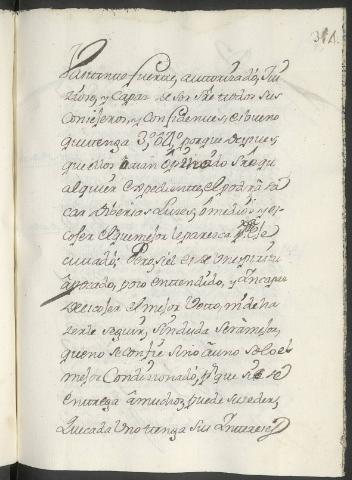 314.
fuerte, autorizado, Jui
zioso, y Capaz de ser Pretendor sus
Consejeros, y Confidentes, es bueno
que tenga 3, o 4, porque despues,
que ellos haian opinado sobre qu
alquier Expediente, el podrá sa
car diversas luzes, o medios, y es
cojer el que mejor le paresca
cutado; Pero, si el es de un espiritu
apocado, poco entendido, y incapaz
de escojer el mejor Voto, ni de ha
zerle seguir, sin duda será mejor,
que no se confie sino a uno solo el
mejor Condizionado, pr que si se
entrega a muchos, puede suceder,
que cada Uno tenga sus Intereses